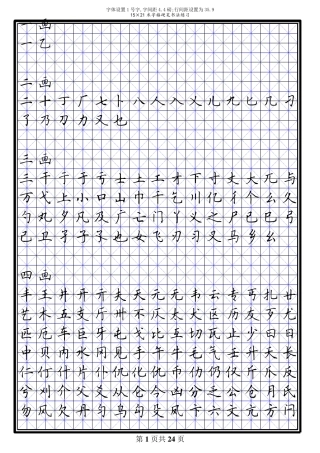 字体设置1号字,字间距4.4磅,行间距设置为38.9
15×21米字格硬笔书法练习
一画
一乙
二画
二十丁厂七卜八人入乂儿九匕几刁
了乃刀力又乜
三画
三干于亏士土工才下寸丈大兀与
万弋上小口山巾千乞川亿彳个么久
勺丸夕凡及广亡门丫义之尸已巳弓
己卫孑子孓也女飞刃习叉马乡幺
四画
丰王井开亓夫天元无韦云专丐扎廿
艺木五支厅卅不仄太犬区历友歹尤
匹厄车巨牙屯戈比互切瓦止少曰日
中贝内水冈见手午牛毛气壬升夭长
仁什片仆化仇币仂仍仅斤爪反
兮刈介父爻从仑今凶分乏公仓月氏
勿风欠丹匀乌勾殳凤卞六文亢方闩
第1页共24页